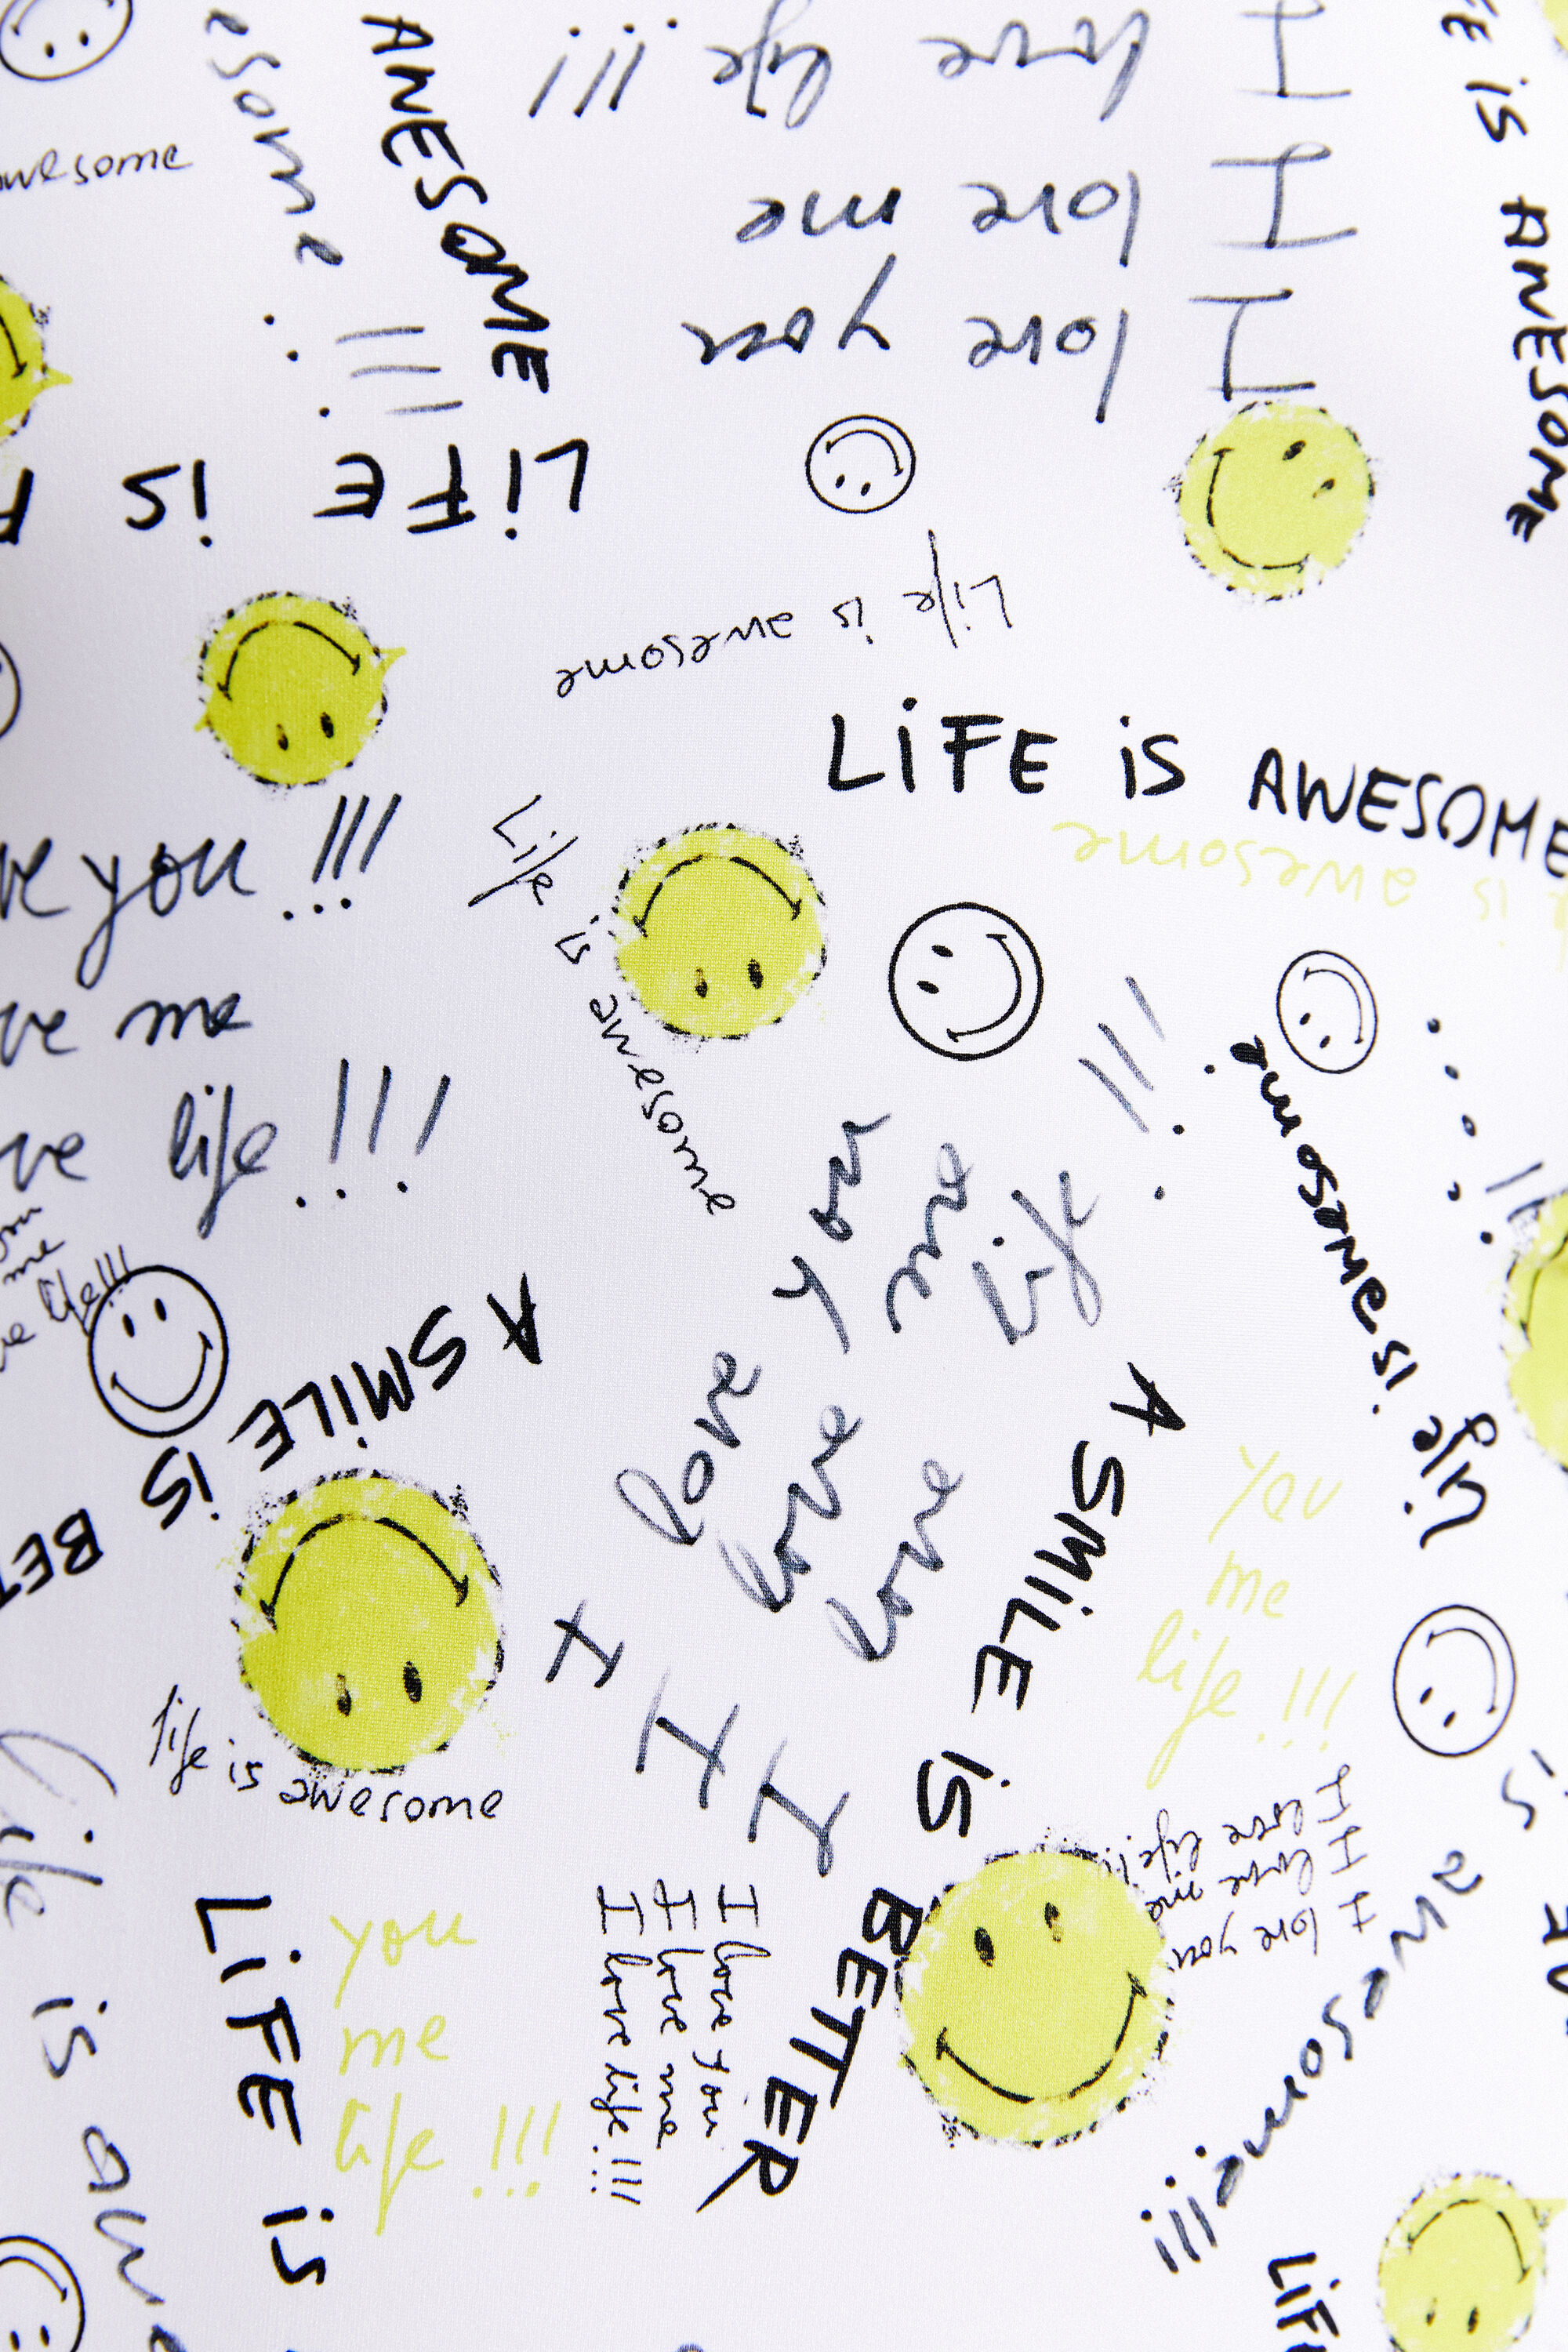 esome !!!
AWESOME
I love life !!!
I love me
I love you
awesome
LIFE is
iS AWESOME
Life is awesome
LIFE iS AWESOME
is awesome
you !!!
me
life !!!
Life is awesome
life is awesome!
I love you
I love me
I love life !!!
me
life!!!
A SMILE iS
A SMILE iS BETTER
you
me
life !!!
life is awesome
I love you
I love me
I love life!!
is awesome!!!
Life is
LIFE iS
you
me
life !!!
I love you
I love me
I love life!!!